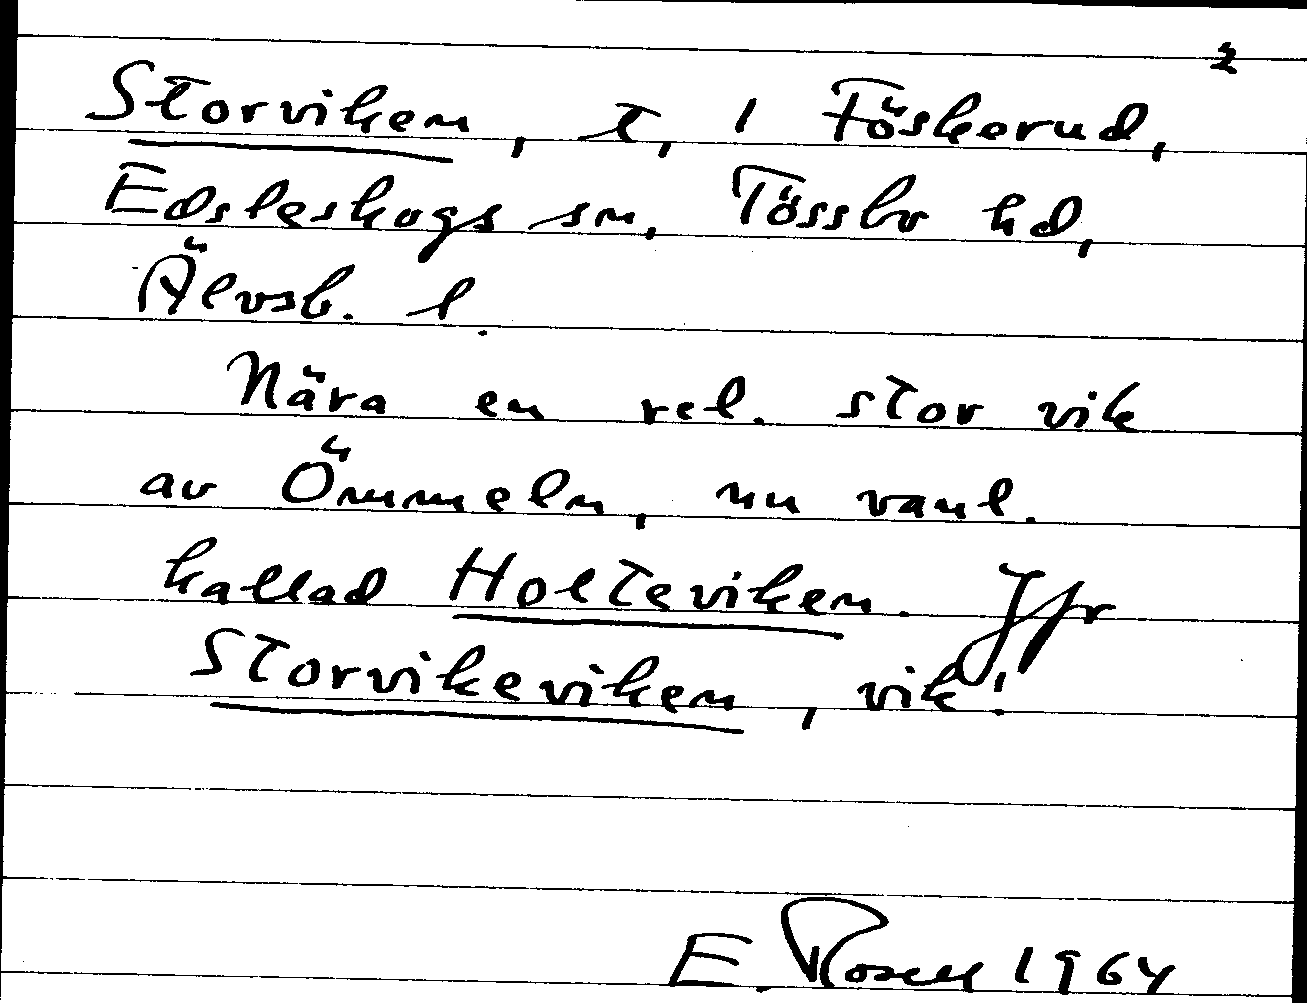 2
Storviken, t, 1 Föskerud,
Edsleskogs sn, Tössbo hd,
Älvsb. l.
Nära en rel. stor vik
av Ömmeln, nu vanl.
kallad Holteviken. Jfr
Storvikeviken, vik!
E. Rosell 1964